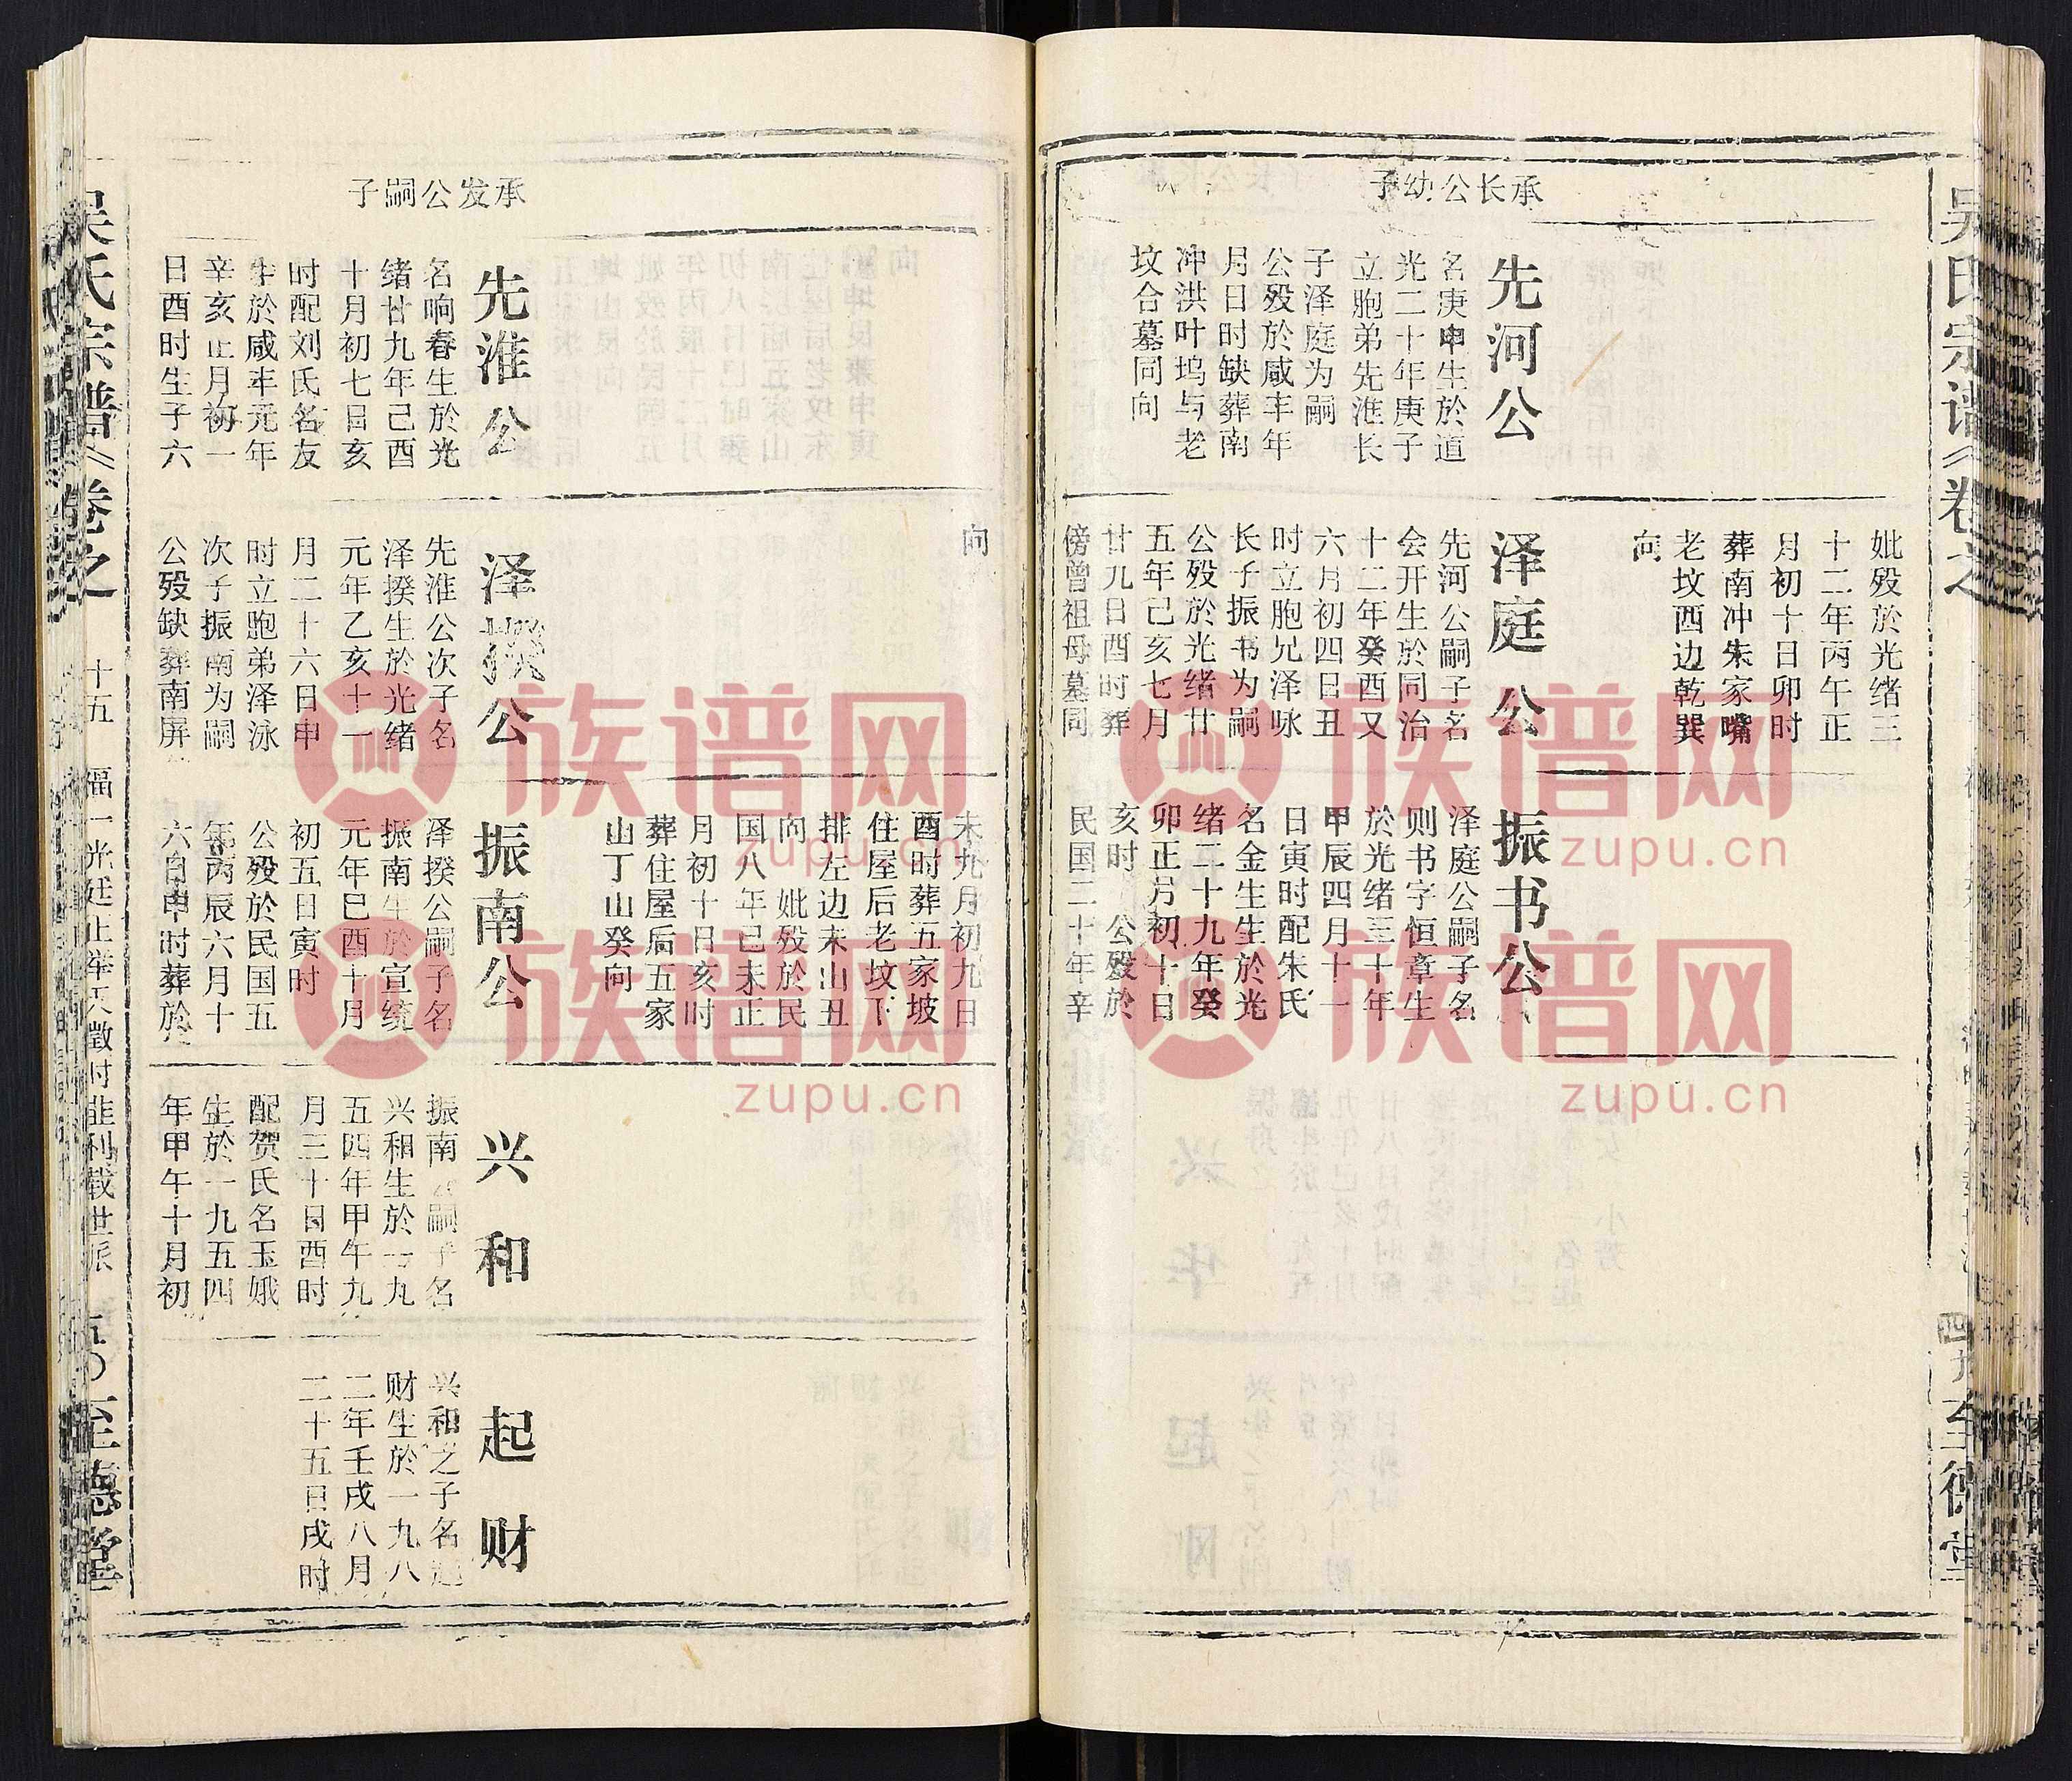 吴氏宗谱
卷之
四九
至德堂
承长公幼子
先河公
名庚申生於道
光二十年庚子
立胞弟先淮长
子泽庭为嗣
公殁於咸丰年
月日时缺葬南
冲洪叶坞与老
坟合墓同向
妣殁於光绪三
十二年丙午正
月初十日卯时
葬南冲朱家嘴
老坟酉边乾巽
向
泽庭公
先河公嗣子名
会开生於同治
十二年癸酉又
六月初四日丑
时立胞兄泽咏
长子振书为嗣
公殁於光绪廿
五年己亥七月
廿九日酉时葬
傍曾祖母墓同
振书公
泽庭公嗣子名
则书字恒章生
於光绪三十年
甲辰四月十一
日寅时配朱氏
名金生生於光
绪二十九年癸
卯正月初十日
亥时 公殁於
民国二十年辛
承发公嗣子
向
未九月初九日
酉时葬五家坡
住屋后老坟下
排左边未山丑
向 妣殁於民
国八年己未正
月初十日亥时
葬住屋后五家
山丁山癸向
先淮公
名响春生於光
绪廿九年己酉
十月初七日亥
时配刘氏名友
生於咸丰元年
辛亥正月初一
日酉时生子六
泽揆公
先淮公次子名
泽揆生於光绪
元年乙亥十一
月二十六日申
时立胞弟泽泳
次子振南为嗣
公殁缺葬南屏
振南公
泽揆公嗣子名
振南生於宣统
元年己酉十月
初五日寅时
公殁於民国五
年丙辰六月十
六日申时葬於
兴和
振南公嗣子名
兴和生於一九
五四年甲午九
月三十日酉时
配贺氏名玉娥
生於一九五四
年甲午十月初
起财
兴和之子名起
财生於一九八
二年壬戌八月
二十五日戌时
吴氏宗谱
卷之
十五
福一光廷
世派
五〇
至德堂
族谱网
zupu.cn
族谱网
zupu.cn
族谱网
zupu.cn
族谱网
zupu.cn